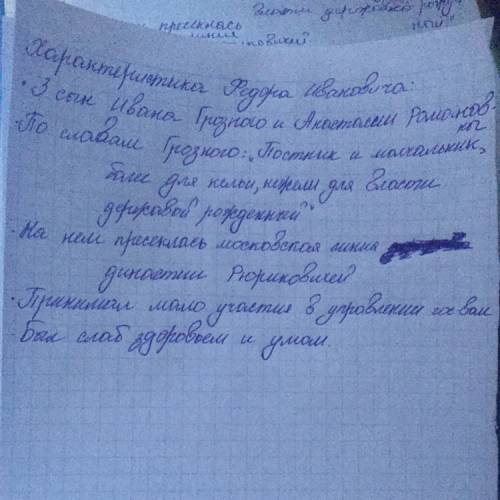 власти державной
ии пресеклась
линия
Характеристика Федора Ивановича:
• 3 сын Ивана Грозного и Анастасии Романов
ны
- По словам Грозного: „Постник и молчальник,
более для кельи, нежели для власти
державой рожденный"
• На нем пресеклась московская линия
династии Рюриковичей
• Принимал мало участия в управлении гос-вом
Был слаб здоровьем и умом.